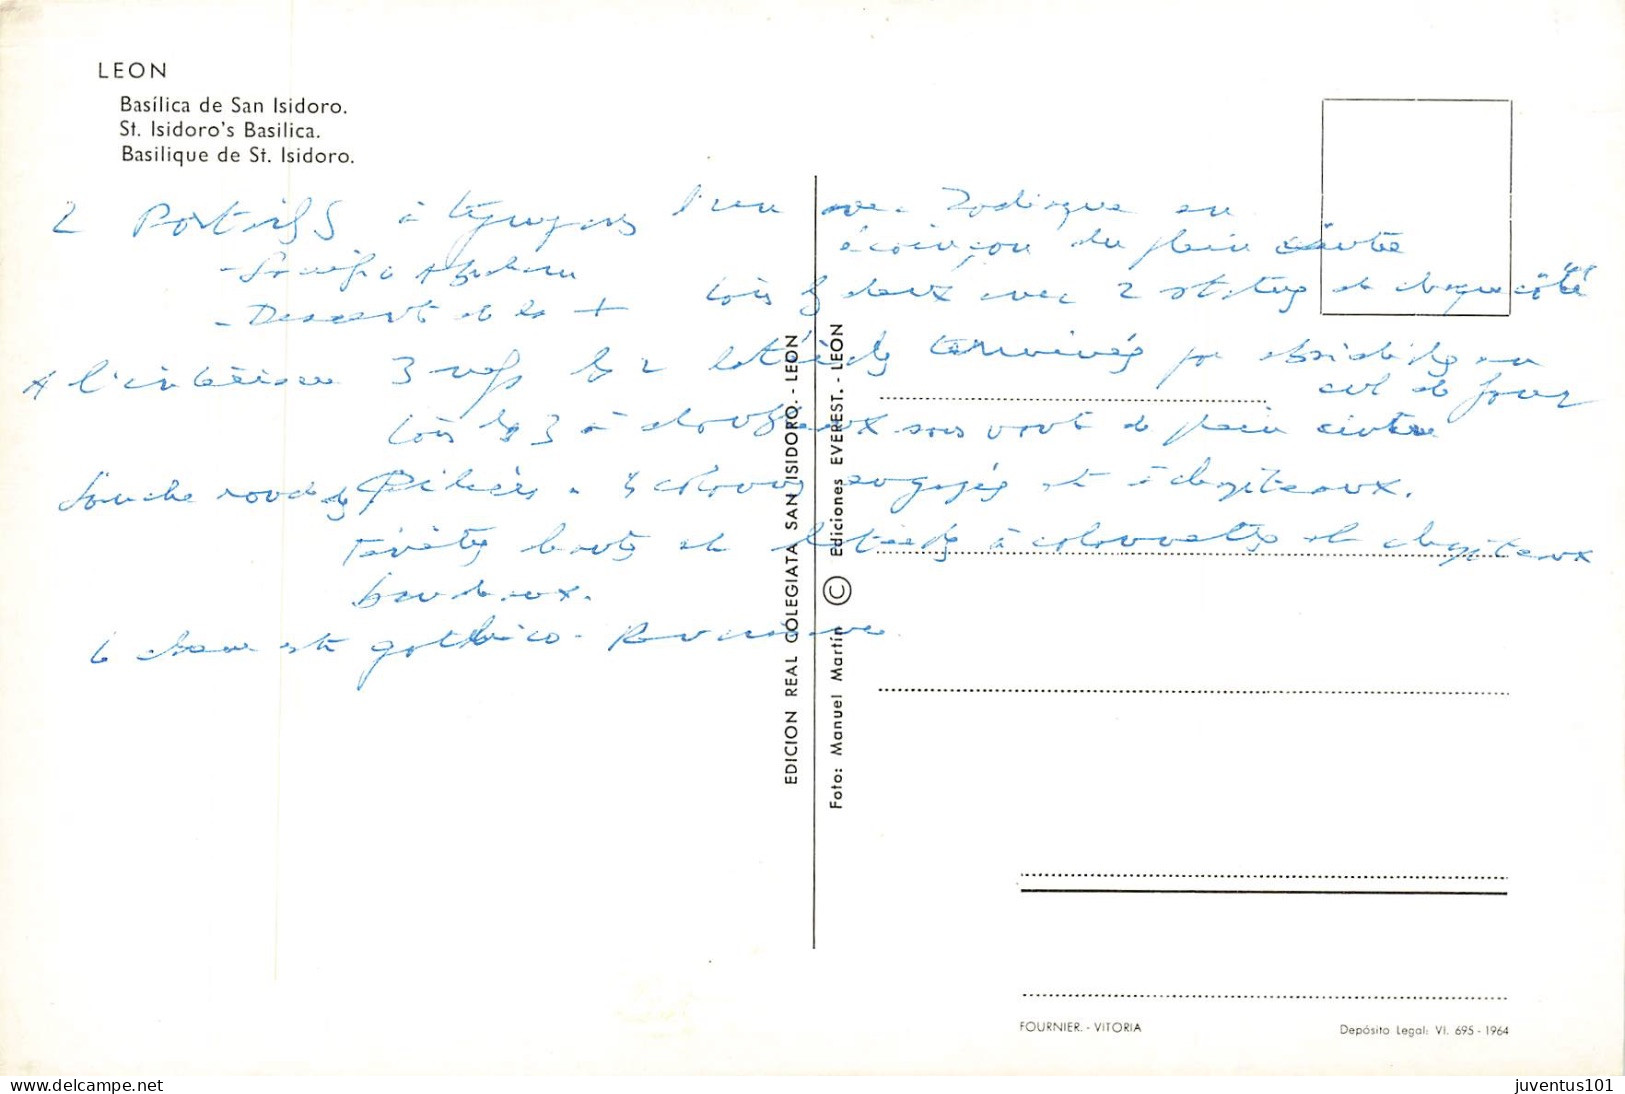 LEON
Basílica de San Isidoro.
St. Isidoro's Basilica.
Basilique de St. Isidoro.
2 Portails à tympans l'un avec Zodiaque en
écoinçon du plein cintre
- Sacrifice Abraham
- Descente de la + tous les deux avec 2 statues de chaque côté
A l'intérieur 3 nefs les 2 latérales terminées par absidioles en
cul de four
tous les 3 à sous voute de plein cintre
rondes Piliers à colonnes engagées et à chapiteaux.
hautes et latérales à colonnettes et chapiteaux
gothico-
EDICION REAL COLEGIATA SAN ISIDORO. - LEON
Foto: Manuel Martín © Ediciones EVEREST. - LEON
FOURNIER. - VITORIA
Depósito Legal: VI. 695 - 1964
www.delcampe.net
juventus101